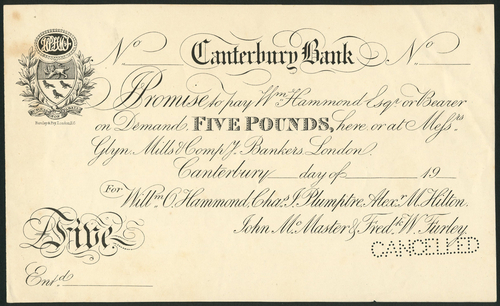 No Canterbury Bank No
Promise to pay Wm Hammond Esqr or Bearer
on Demand FIVE POUNDS, here or at Messrs
Glyn, Mills & Compy Bankers London.
Canterbury day of 19
For Willm O Hammond, Chas J. Plumptre, Alexr M. Hilton,
John Mc Master & Fredk W. Furley.
Five
CANCELLED
Entd